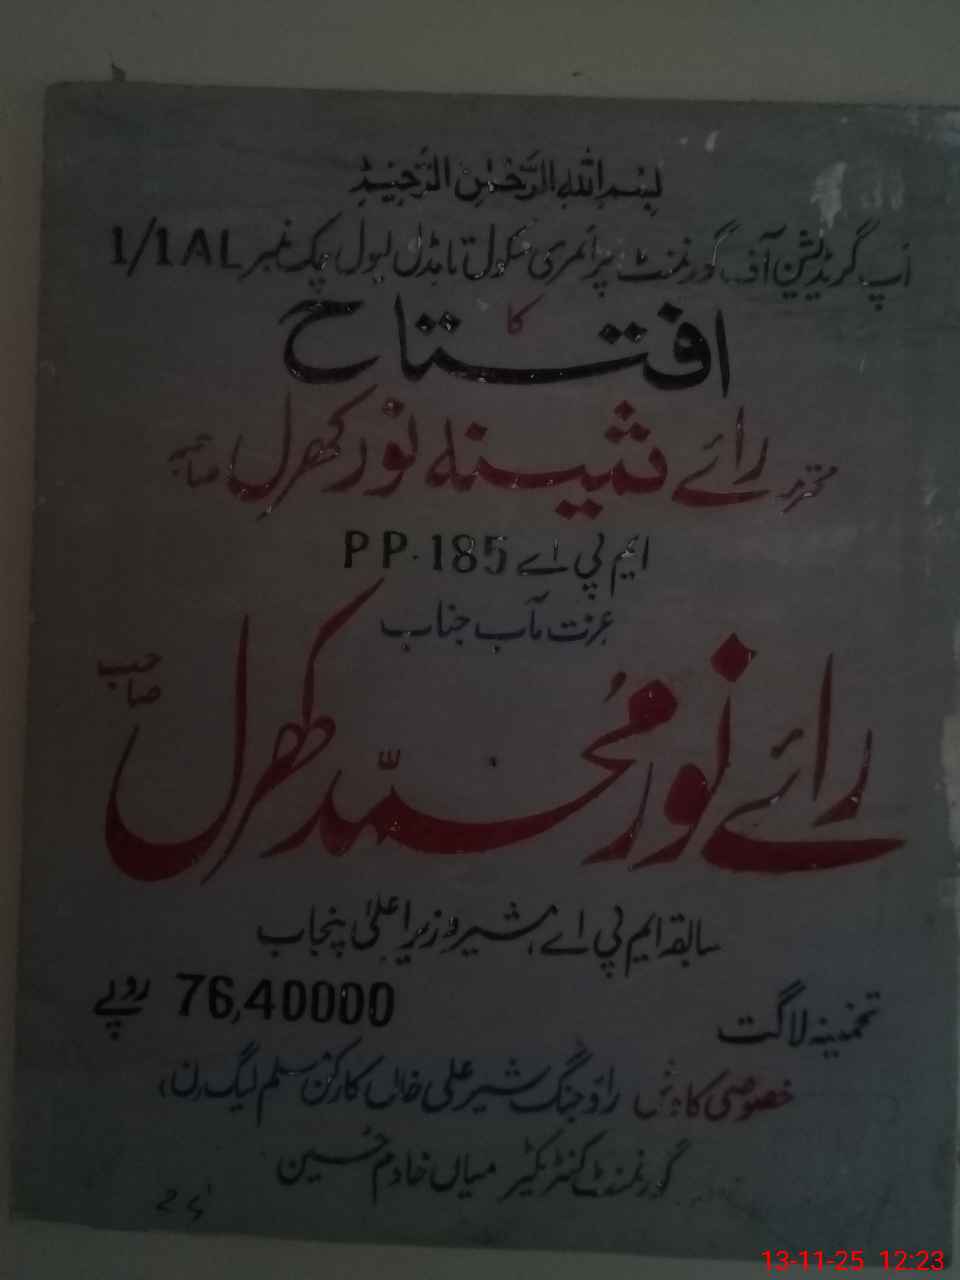 بسم اللہ الرحمٰن الرحیم
اپ گریڈیشن آف گورنمنٹ پرائمری سکول تا مڈل لیول چک نمبر 1/1AL
کا
افتتاح
محترمہ رائے ثمینہ نور کھرل صاحبہ
ایم پی اے PP-185
عزت مآب جناب
رائے نور محمّد کھرل صاحب
سابقہ ایم پی اے، مشیر وزیر اعلیٰ پنجاب
تخمینہ لاگت 76,40000 روپے
خصوصی کاوش راؤ جنگ شیر علی خاں کارکن مسلم لیگ (ن)
گورنمنٹ کنٹریکٹر میاں خادم حسین
13-11-25 12:23